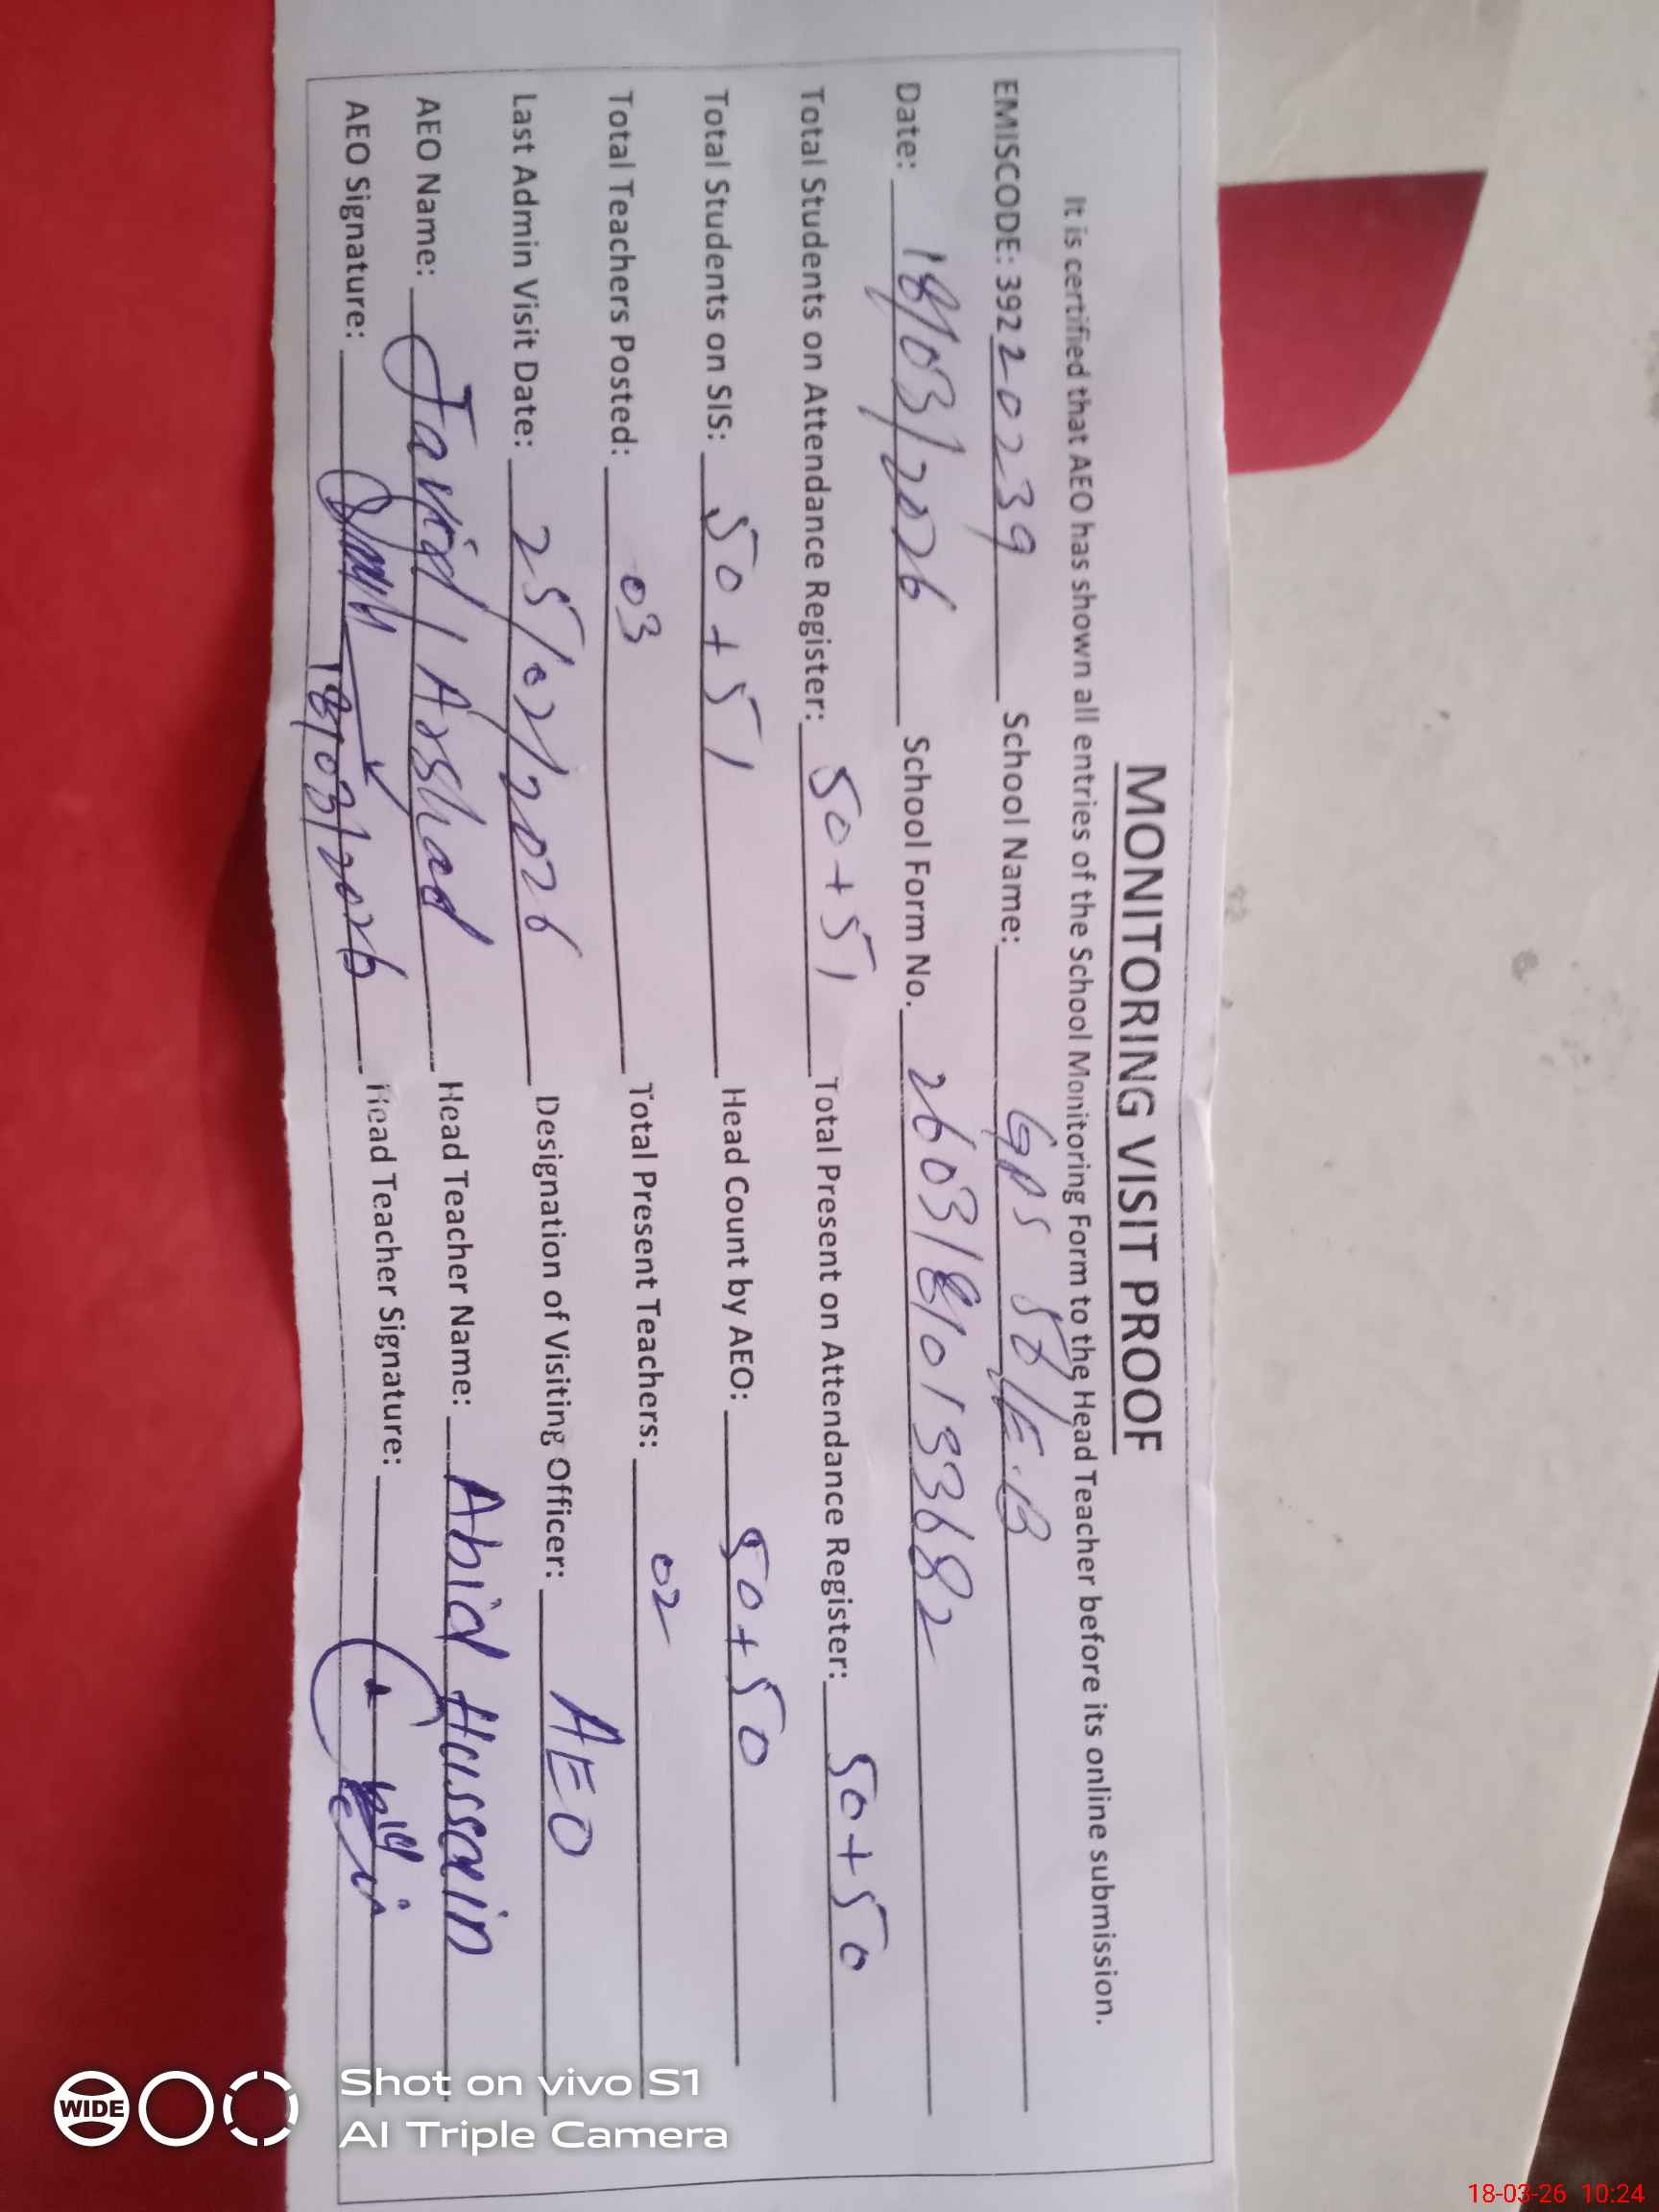 MONITORING VISIT PROOF
It is certified that AEO has shown all entries of the School Monitoring Form to the Head Teacher before its online submission.
EMISCODE: 39220239 School Name: GPS 56/E.B
Date: 18/03/2026 School Form No. 26031810133682
Total Students on Attendance Register: 50+51 Total Present on Attendance Register: 50+50
Total Students on SIS: 50+51 Head Count by AEO: 50+50
Total Teachers Posted: 03 Total Present Teachers: 02
Last Admin Visit Date: 25/02/2026 Designation of Visiting Officer: AEO
AEO Name: Javid Arshad Head Teacher Name: Abid Hussain
AEO Signature: 18/03/2026 Head Teacher Signature:
WIDE
Shot on vivo S1
AI Triple Camera
18-03-26 10:24